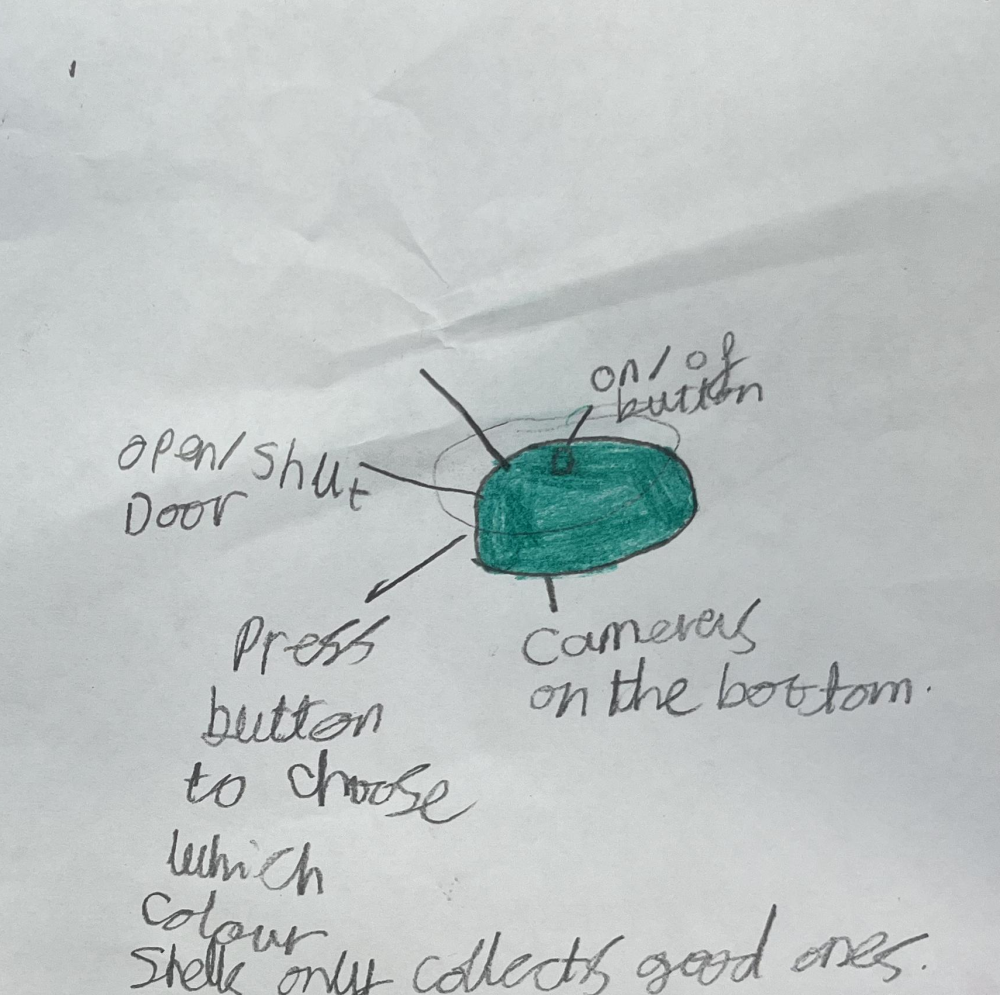 on/of
button
open/shut
Door
Press
button
to choose
which
colour
Shells only collects good ones.
Cameras
on the bottom.